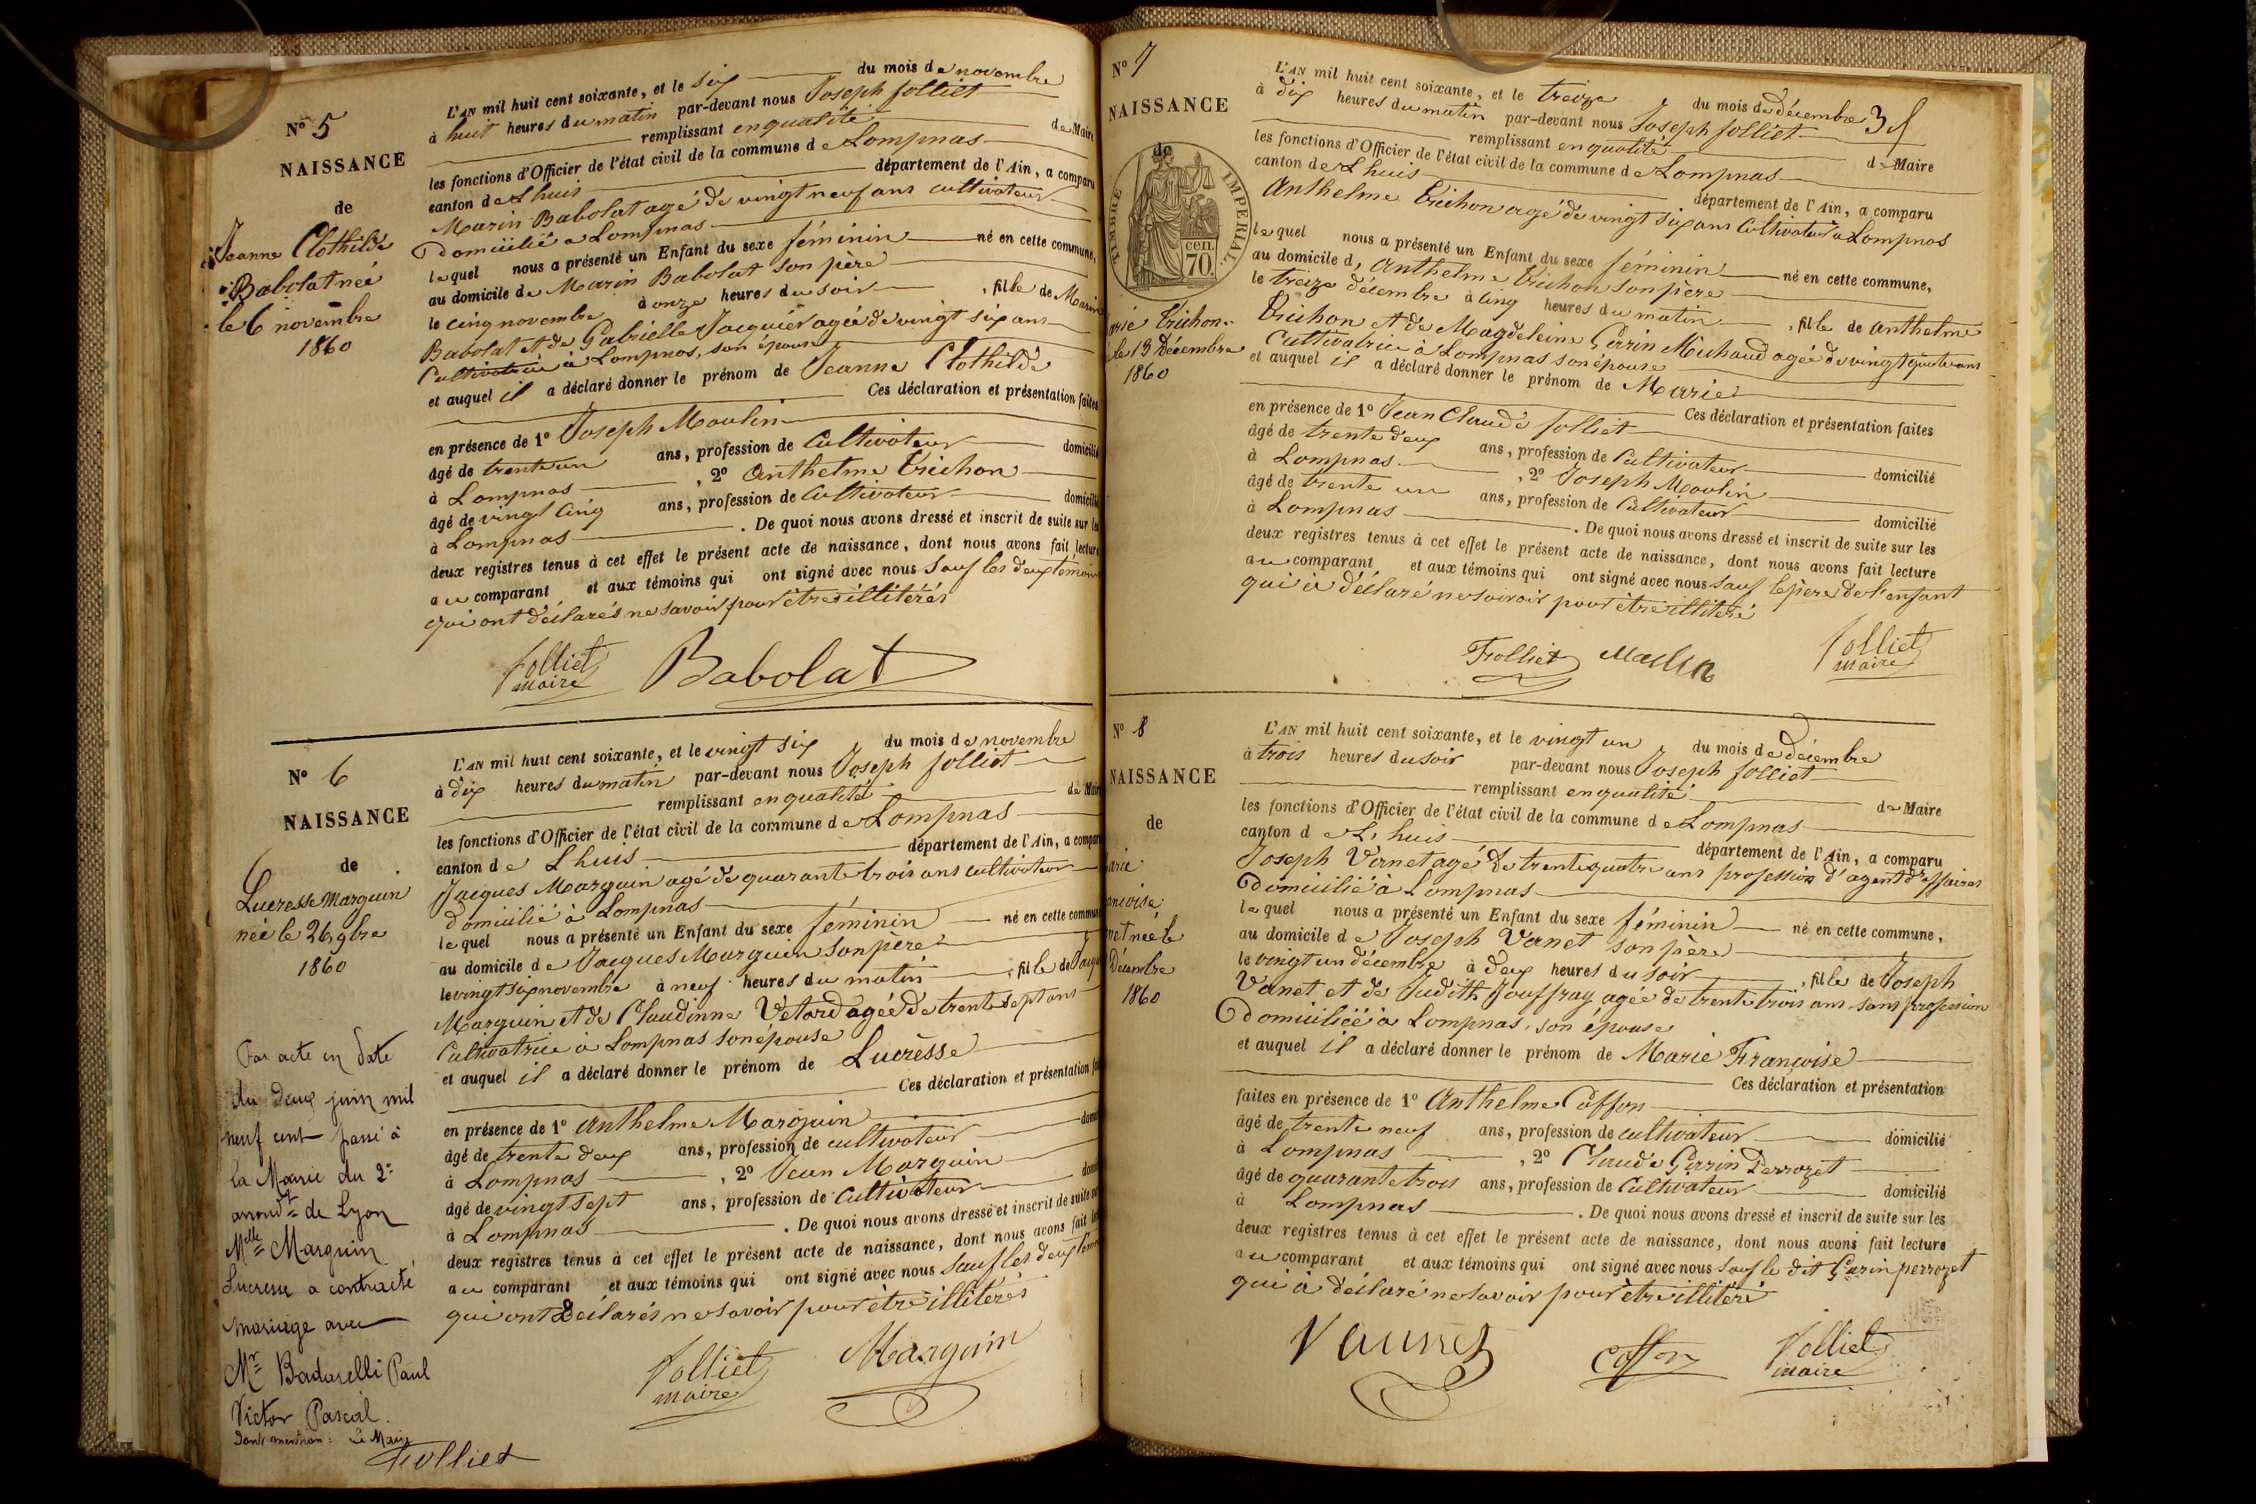 N° 5
NAISSANCE
de
Jeanne Clothilde
Babolat neé
le 6 novembre
1860
L'AN mil huit cent soixante, et le six du mois de novembre
à huit heures du matin par-devant nous Joseph folliet
remplissant en qualité de Maire
les fonctions d'Officier de l'état civil de la commune de Lompnas
canton de Lhuis département de l'Ain, a comparu
Marin Babolat agé de vingt neuf ans cultivateur
Domicilié a Lompnas
lequel nous a présenté un Enfant du sexe féminin né en cette commune,
au domicile de Marin Babolat son père
le cinq novembre à onze heures du soir, fille de Marin
Babolat et de Gabrielle Jacquier agée de vingt six ans
Cultivatrice à Lompnas, son épouse
et auquel il a déclaré donner le prénom de Jeanne Clothilde
Ces déclaration et présentation faites
en présence de 1° Joseph Moulin
âgé de trente un ans, profession de Cultivateur domicilié
à Lompnas, 2° Anthelme Trichon
âgé de vingt cinq ans, profession de Cultivateur domicilié
à Lompnas. De quoi nous avons dressé et inscrit de suite sur les
deux registres tenus à cet effet le présent acte de naissance, dont nous avons fait lecture
au comparant et aux témoins qui ont signé avec nous sauf les deux témoins
qui ont déclarés ne savoir pour être illitérés
folliet
maire
Babolat
N° 6
NAISSANCE
de
Lucresse Marguin
née le 26 9bre
1860
Par acte en date
du deux juin mil
neuf cent passé à
la Mairie du 2e
arrondt de Lyon
Melle Marguin
Lucresse a contracté
mariage avec
Mr Badarelli Paul
Victor Pascal.
Dont mention: Le Maire
Folliet
L'AN mil huit cent soixante, et le vingt six du mois de novembre
à dix heures du matin par-devant nous Joseph folliet
remplissant en qualité de Maire
les fonctions d'Officier de l'état civil de la commune de Lompnas
canton de Lhuis département de l'Ain, a comparu
Jacques Marguin agé de quarante trois ans cultivateur
domicilié à Lompnas
lequel nous a présenté un Enfant du sexe féminin né en cette commune
au domicile de Jacques Marguin son père
le vingt six novembre à neuf heures du matin, fille de Jacques
Marguin et de Claudinne Vetard agée de trente sept ans
Cultivatrice a Lompnas son épouse
et auquel il a déclaré donner le prénom de Lucrèsse
Ces déclaration et présentation
en présence de 1° Anthelme Marguin
âgé de trente deux ans, profession de cultivateur
à Lompnas, 2° Jean Marguin
âgé de vingt sept ans, profession de Cultivateur
à Lompnas. De quoi nous avons dressé et inscrit de suite sur
deux registres tenus à cet effet le présent acte de naissance, dont nous avons fait
au comparant et aux témoins qui ont signé avec nous sauf les deux témoins
qui ont déclarés ne savoir pour être illitérés
folliet
maire
Marguin
N° 7
NAISSANCE
de
TIMBRE IMPERIAL
70 cen.
Trichon
le 13 Décembre
1860
3
L'AN mil huit cent soixante, et le treize du mois de décembre
à dix heures du matin par-devant nous Joseph folliet
remplissant en qualité de Maire
les fonctions d'Officier de l'état civil de la commune de Lompnas
canton de Lhuis département de l'Ain, a comparu
Anthelme Trichon agé de vingt six ans Cultivateur à Lompnas
lequel nous a présenté un Enfant du sexe féminin né en cette commune,
au domicile d, Anthelme Trichon son père
le treize décembre à cinq heures du matin, fille de Anthelme
Trichon et de Magdeleine Perrin Michaud agée de vingt quatre ans
Cultivatrice à Lompnas son épouse
et auquel il a déclaré donner le prénom de Marie
Ces déclaration et présentation faites
en présence de 1° Jean Claude folliet
âgé de trente deux ans, profession de Cultivateur domicilié
à Lompnas, 2° Joseph Moulin
âgé de trente un ans, profession de Cultivateur domicilié
à Lompnas. De quoi nous avons dressé et inscrit de suite sur les
deux registres tenus à cet effet le présent acte de naissance, dont nous avons fait lecture
au comparant et aux témoins qui ont signé avec nous sauf le père de l'enfant
qui à déclaré ne savoir pour être illitéré
Folliet
Moulin
folliet
maire
N° 8
NAISSANCE
de
née le
Décembre
1860
L'AN mil huit cent soixante, et le vingt un du mois de décembre
à trois heures du soir par-devant nous Joseph folliet
remplissant en qualité de Maire
les fonctions d'Officier de l'état civil de la commune de Lompnas
canton de L'huis département de l'Ain, a comparu
Joseph Vanet agé de trente quatre ans profession d'agent d'affaires
Domicilié à Lompnas
lequel nous a présenté un Enfant du sexe féminin né en cette commune,
au domicile de Joseph Vanet son père
le vingt un décembre à deux heures du soir, fille de Joseph
Vanet et de Judith Jouffray agée de trente trois ans sans profession
Domiciliée à Lompnas, son épouse
et auquel il a déclaré donner le prénom de Marie Françoise
Ces déclaration et présentation
faites en présence de 1° Anthelme Coffon
âgé de trente neuf ans, profession de cultivateur domicilié
à Lompnas, 2° Claude Perrin Perrozet
âgé de quarante trois ans, profession de Cultivateur domicilié
à Lompnas. De quoi nous avons dressé et inscrit de suite sur les
deux registres tenus à cet effet le présent acte de naissance, dont nous avons fait lecture
au comparant et aux témoins qui ont signé avec nous sauf le dit Perrin perrozet
qui à déclaré ne savoir pour être illitéré
Coffon
folliet
maire